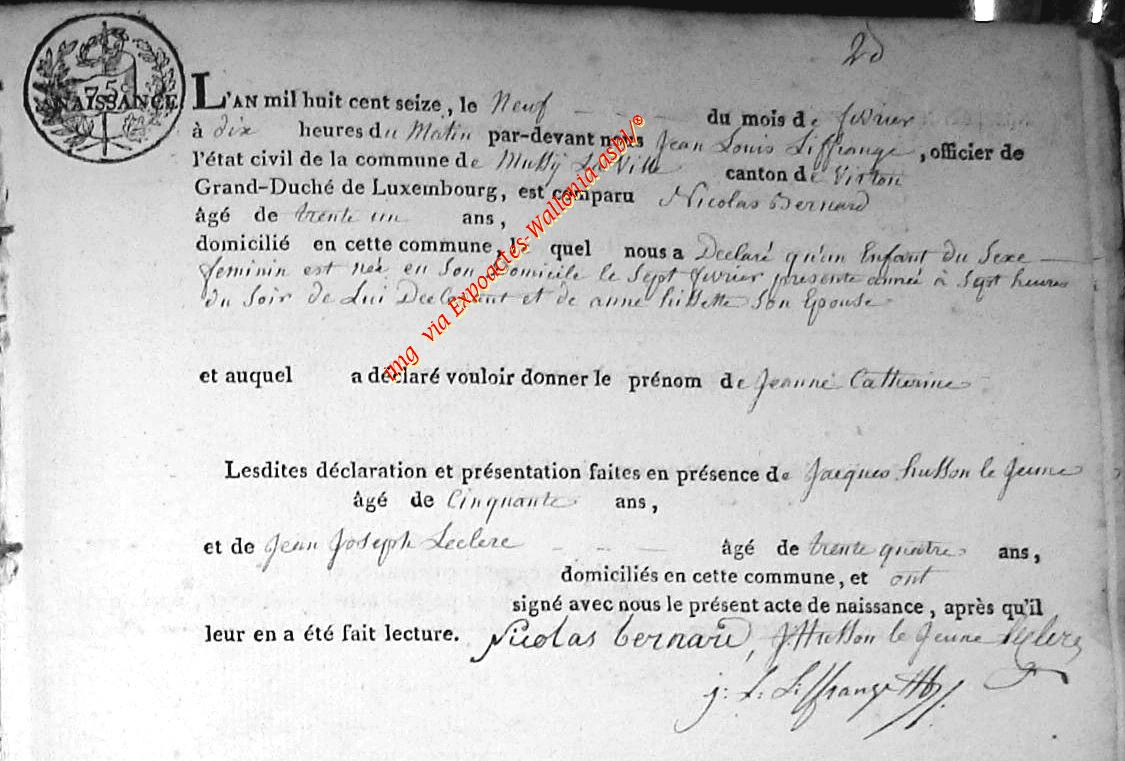 2d
75c
NAISSANCE.
L'AN mil huit cent seize, le Neuf du mois de fevrier
à dix heures du Matin par-devant nous Jean Louis Liffrange, officier de
l'état civil de la commune de Mussy La Ville canton de Virton
Grand-Duché de Luxembourg, est comparu Nicolas Bernard
âgé de trente un ans,
domicilié en cette commune, le quel nous a Declaré qu'un Enfant du Sexe
feminin est née en Son Domicile le Sept fevrier presente année à Sept heures
du Soir de Lui Declarant et de anne Son Epouse
et auquel a déclaré vouloir donner le prénom de Jeanne Catherine
Lesdites déclaration et présentation faites en présence de Jacques husson le Jeune
âgé de Cinquante ans,
et de Jean Joseph Leclerc âgé de trente quatre ans,
domiciliés en cette commune, et ont
signé avec nous le présent acte de naissance, après qu'il
leur en a été fait lecture. Nicolas bernard, J Husson le Jeune leclerc
j: L: Liffrange
img via Expoactes-Wallonia asbl/©